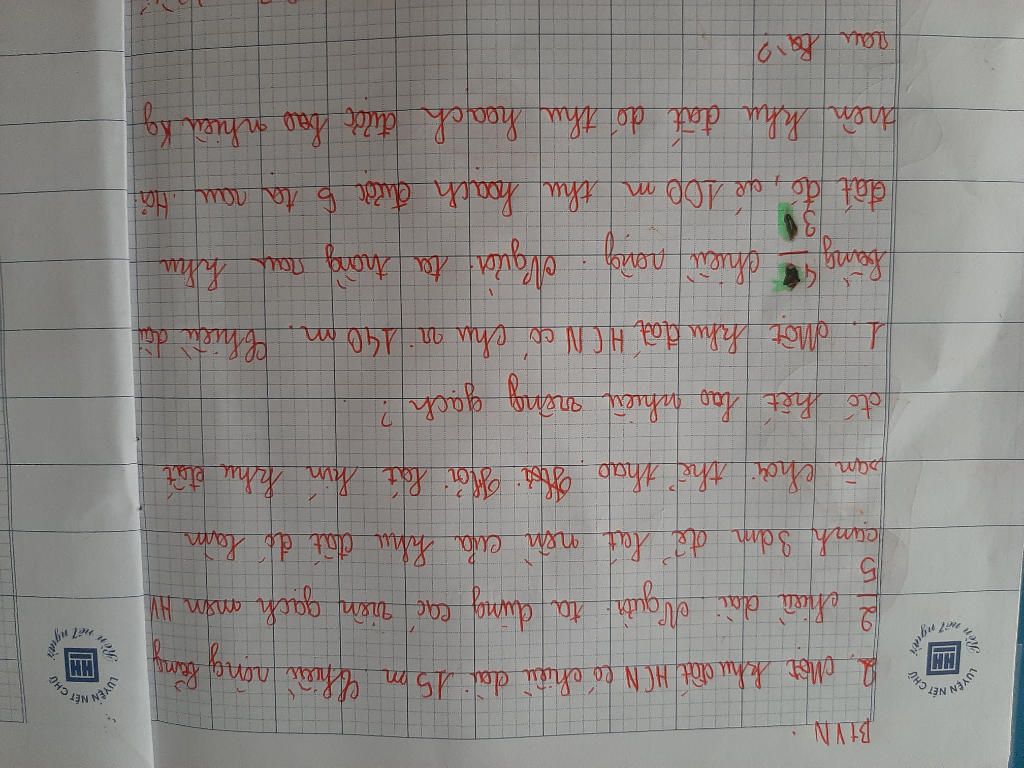 BTVN.
2. Một khu đất HCN có chiều dài 15 m. Chiều rộng bằng
2/5 chiều dài. Người ta dùng các viên gạch men HV
cạnh 3dm để lát nền của khu đất để làm
sân chơi thể thao. Hỏi lát kín khu đất
đó hết bao nhiêu viên gạch?
1. Một khu đất HCN có chu vi 140 m. Chiều dài
bằng 4/3 chiều rộng. Người ta trồng rau khu
đất đó, cứ 100 m thu hoạch được 5 tạ rau. Hỏi
trên khu đất đó thu hoạch được bao nhiêu kg
rau
LUYỆN NÉT CHỮ
HH
Rèn nết người
LUYỆN NÉT CHỮ
HH
Rèn nết người